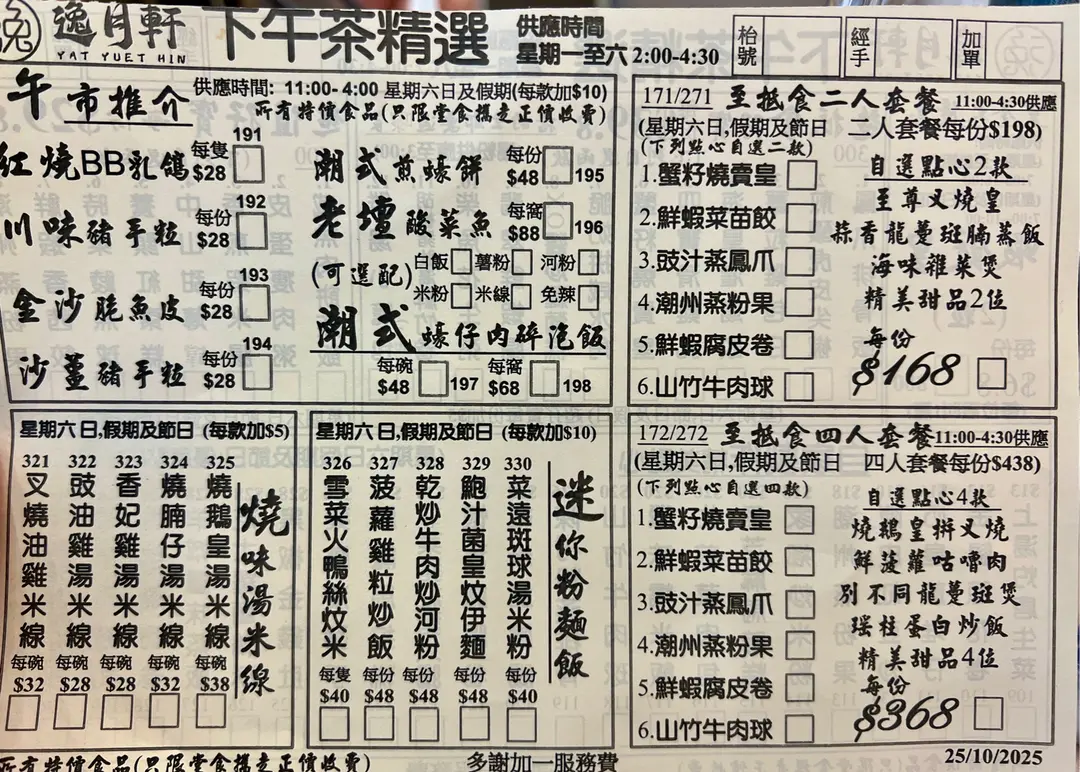 逸
逸月軒
YAT YUET HIN
下午茶精選
供應時間
星期一至六 2:00-4:30
枱號
經手
加單
午市推介
供應時間: 11:00- 4:00 星期六日及假期(每款加$10)
所有特價食品(只限堂食攜走正價收費)
191
紅燒BB乳鴿 每隻 $28
192
川味豬手粒 每份 $28
193
金沙脆魚皮 每份 $28
194
沙薑豬手粒 每份 $28
潮式煎蠔餅 每份 $48 195
老壇酸菜魚 每窩 $88 196
(可選配) 白飯 薯粉 河粉
米粉 米線 免辣
潮式蠔仔肉碎泡飯
每碗 $48 197 每窩 $68 198
171/271 至抵食二人套餐 11:00-4:30供應
(星期六日,假期及節日 二人套餐每份$198)
(下列點心自選二款)
1.蟹籽燒賣皇
2.鮮蝦菜苗餃
3.豉汁蒸鳳爪
4.潮州蒸粉果
5.鮮蝦腐皮卷
6.山竹牛肉球
自選點心2款
至尊叉燒皇
蒜香龍躉斑腩蒸飯
海味雜菜煲
精美甜品2位
每份
$168
星期六日,假期及節日 (每款加$5)
321 叉燒油雞湯米線 每碗 $32
322 豉油雞湯米線 每碗 $28
323 香妃雞湯米線 每碗 $28
324 燒腩仔湯米線 每碗 $32
325 燒鵝皇湯米線 每碗 $38
燒味湯米線
星期六日,假期及節日 (每款加$10)
326 雪菜火鴨絲炆米 每隻 $40
327 菠蘿雞粒炒飯 每份 $48
328 乾炒牛肉炒河粉 每份 $48
329 鮑汁菌皇炆伊麵 每份 $48
330 菜遠斑球湯米粉 每份 $40
迷你粉麵飯
172/272 至抵食四人套餐 11:00-4:30供應
(星期六日,假期及節日 四人套餐每份$438)
(下列點心自選四款)
1.蟹籽燒賣皇
2.鮮蝦菜苗餃
3.豉汁蒸鳳爪
4.潮州蒸粉果
5.鮮蝦腐皮卷
6.山竹牛肉球
自選點心4款
燒鵝皇拼叉燒
鮮菠蘿咕嚕肉
別不同龍躉斑煲
瑤柱蛋白炒飯
精美甜品4位
每份
$368
所有特價食品(只限堂食攜走正價收費)
多謝加一服務費
25/10/2025